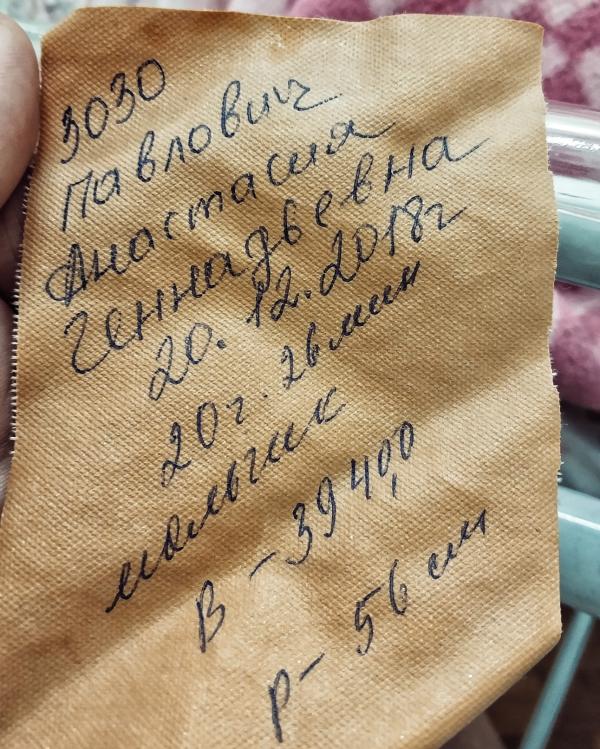 3030
Павлович
Анастасия
Геннадьевна
20.12.2018г
20г. 26 мин
мальчик
В - 3940,0
р - 56 см